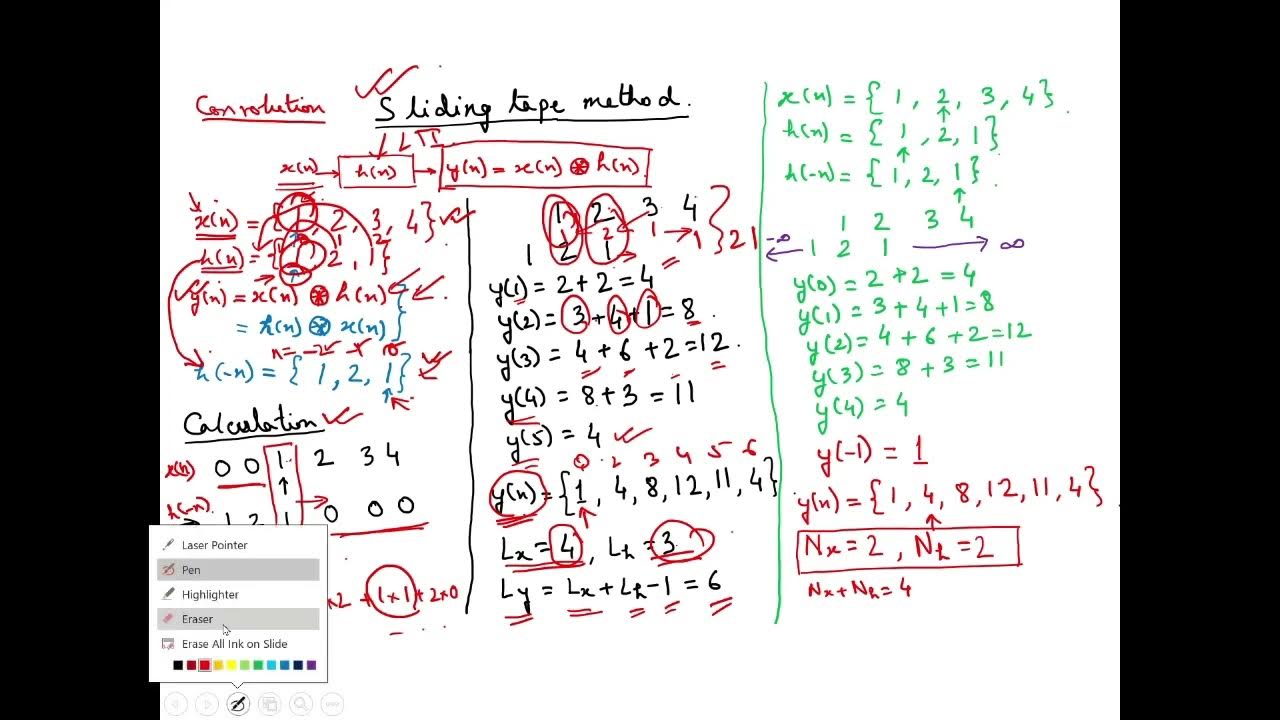 Convolution
Sliding tape method.
LTI
x(n) → h(n) → y(n) = x(n) ⊛ h(n)
x(n) = {1, 2, 3, 4}
h(n) = {1, 2, 1}
y(n) = x(n) ⊛ h(n)
= h(n) ⊛ x(n)
n = -2 -1 0
h(-n) = {1, 2, 1}
Calculation
x(n) 0 0 1 2 3 4
h(-n) 1 2 1 0 0 0
×2 + (1×1) + 2×0
Laser Pointer
Pen
Highlighter
Eraser
Erase All Ink on Slide
1 2 3 4
1 2 1 → 1 } 2 1
1 2 1
y(1) = 2 + 2 = 4
y(2) = 3 + 4 + 1 = 8.
y(3) = 4 + 6 + 2 = 12.
y(4) = 8 + 3 = 11
y(5) = 4
0 2 3 4 5 6
y(n) = {1, 4, 8, 12, 11, 4}
Lx = 4, Lh = 3
Ly = Lx + Lh - 1 = 6
x(n) = {1, 2, 3, 4}.
h(n) = {1, 2, 1}
h(-n) = {1, 2, 1}.
1 2 3 4
-∞ ← 1 2 1 → ∞
y(0) = 2 + 2 = 4
y(1) = 3 + 4 + 1 = 8
y(2) = 4 + 6 + 2 = 12
y(3) = 8 + 3 = 11
y(4) = 4
y(-1) = 1
y(n) = {1, 4, 8, 12, 11, 4}.
Nx = 2, Nh = 2
Nx + Nh = 4